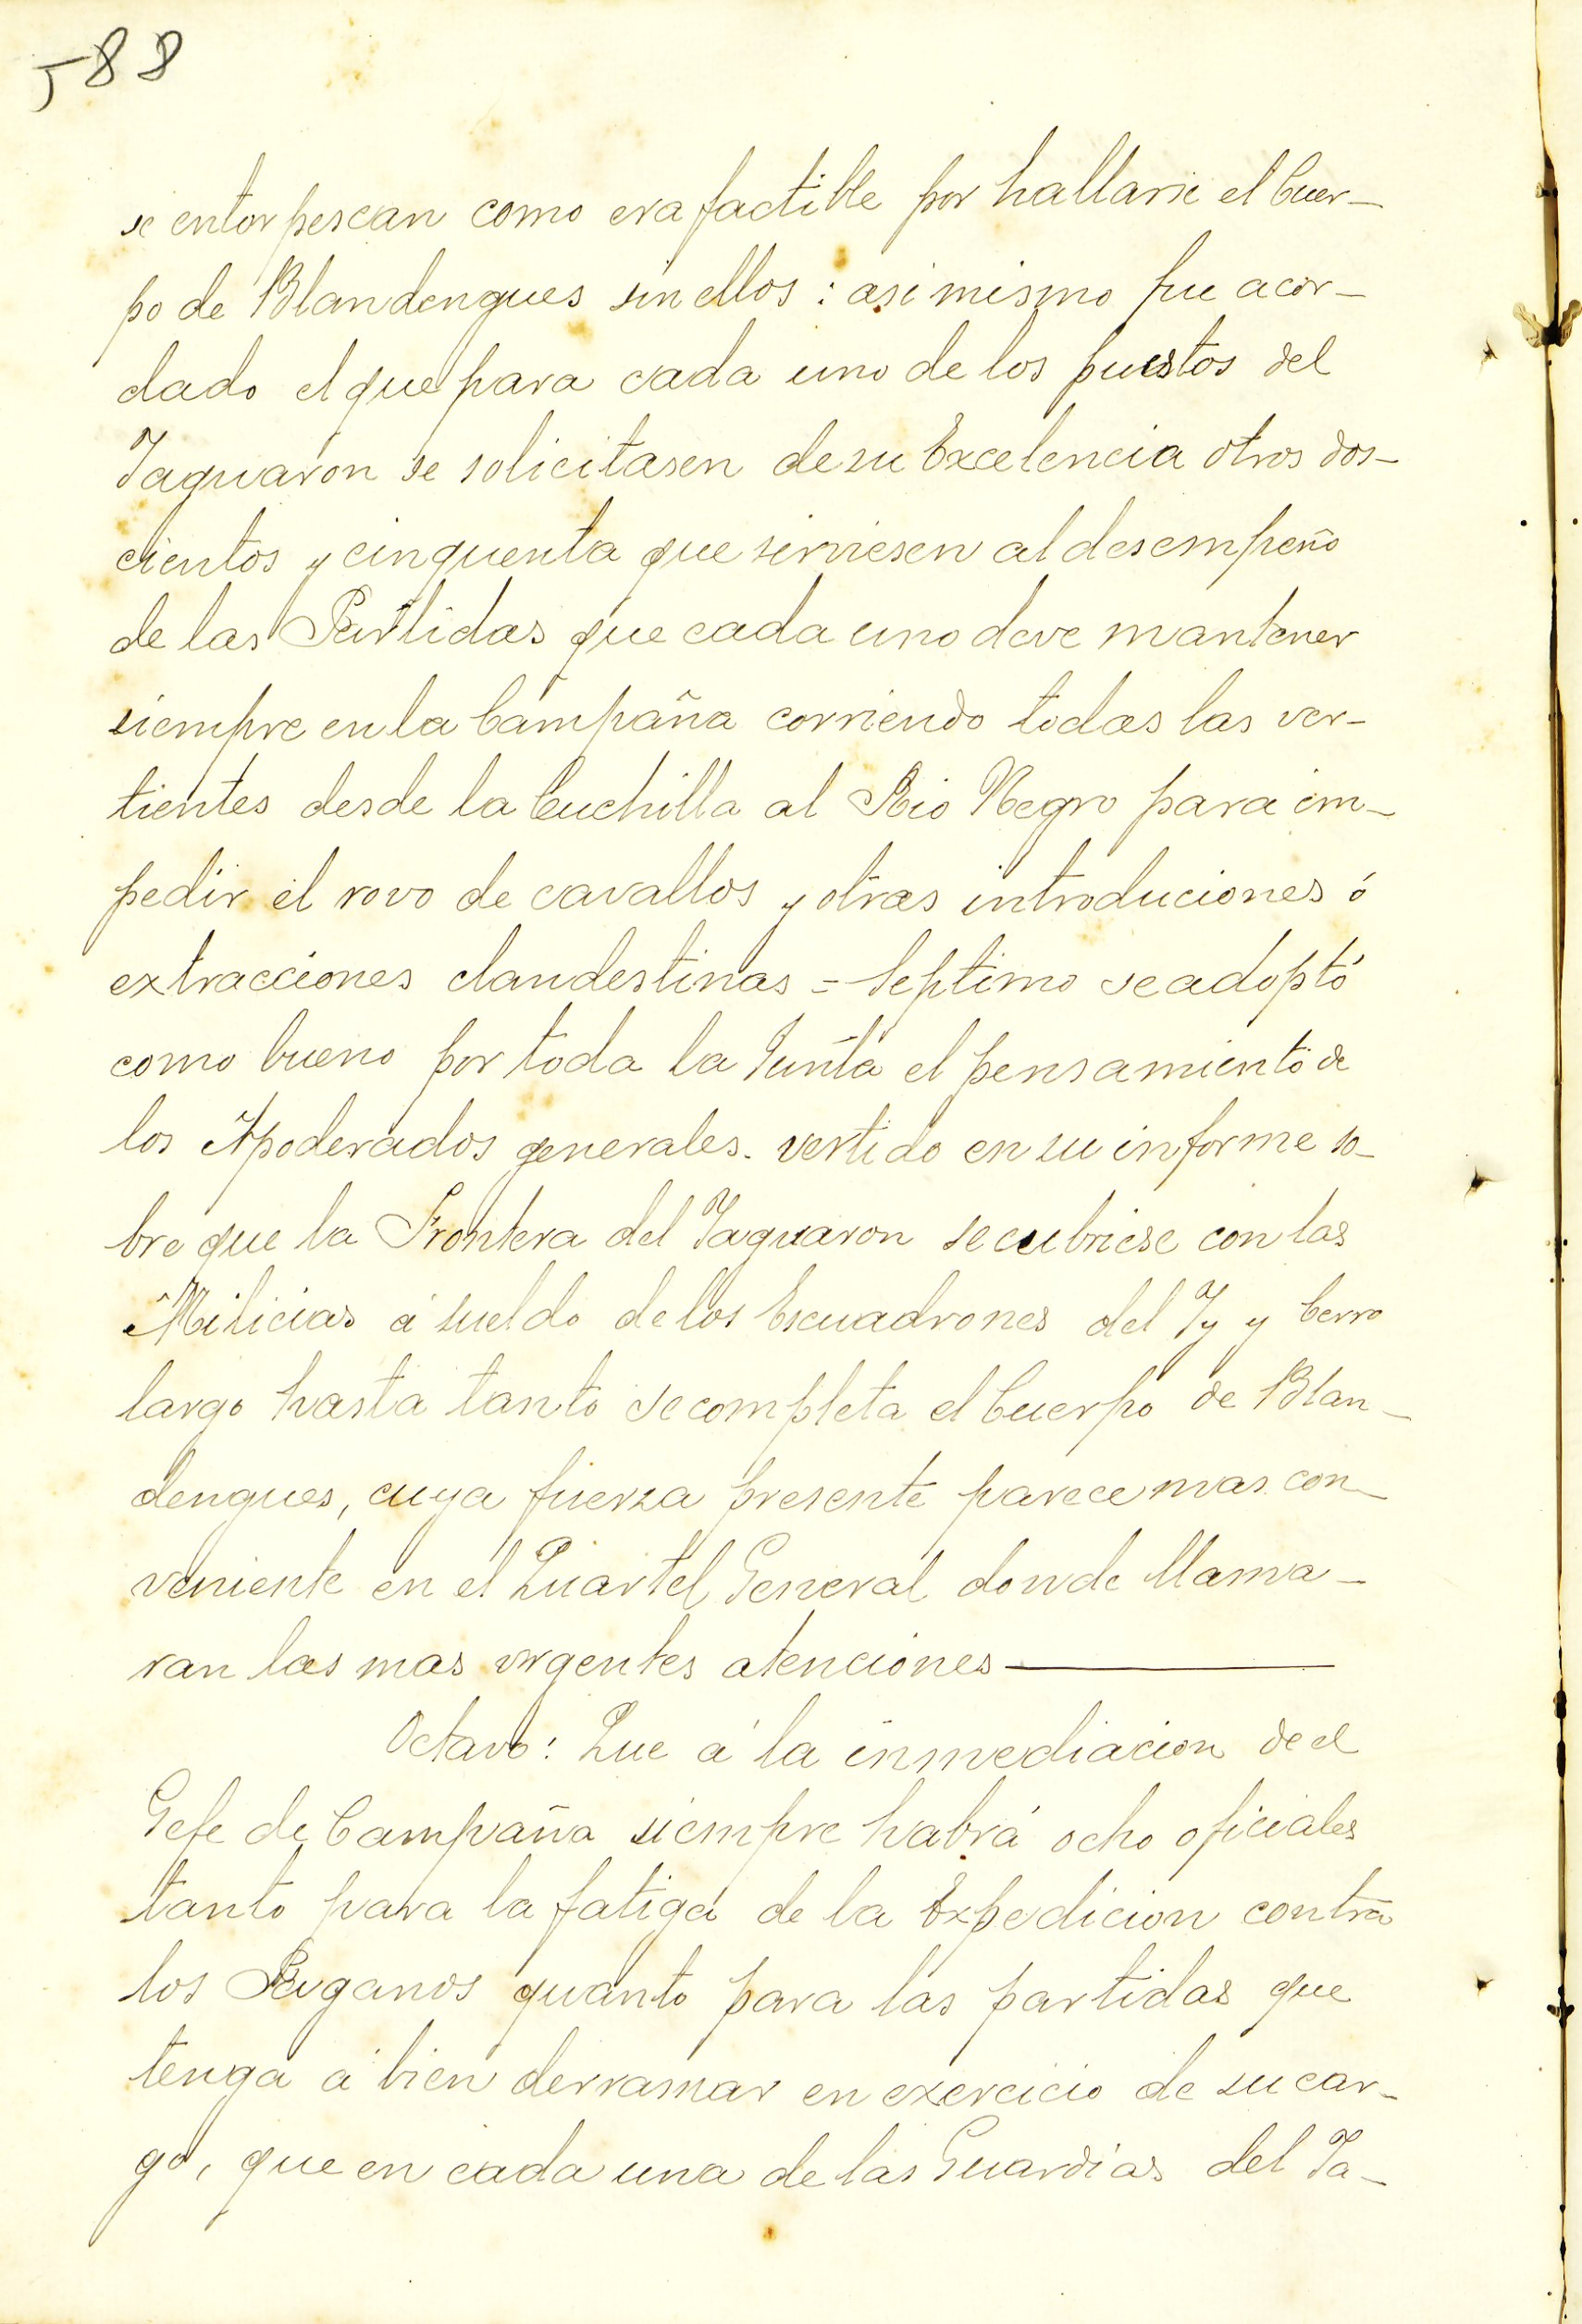 588
se entorpescan como era factible por hallarse el Cuer-
po de Blandengues sin ellos : asi mismo fue acor-
dado el que para cada uno de los puestos del
Yaguaron se solicitasen de su Excelencia otros dos-
cientos y cinquenta que sirviesen al desempeño
de las Partidas que cada uno deve mantener
siempre en la Campaña corriendo todas las ver-
tientes desde la Cuchilla al Rio Negro para im-
pedir el rovo de cavallos y otras introduciones ó
extracciones clandestinas = Septimo se adoptó
como bueno por toda la Junta el pensamiento de
los Apoderados generales. vertido en su informe so-
bre que la Frontera del Yaguaron se cubriese con las
Milicias á sueldo de los Escuadrones del Yy y Cerro
largo hasta tanto se completa el Cuerpo de Blan-
dengues, cuya fuerza presente parece mas con-
veniente en el Quartel General donde llama-
ran las mas urgentes atenciones
Octavo: Que á la inmediacion de el
Gefe de Campaña siempre habrá ocho oficiales
tanto para la fatiga de la Expedicion contra
los Paganos quanto para las partidas que
tenga á bien derramar en exercicio de su car-
go, que en cada una de las Guardias del Ya-